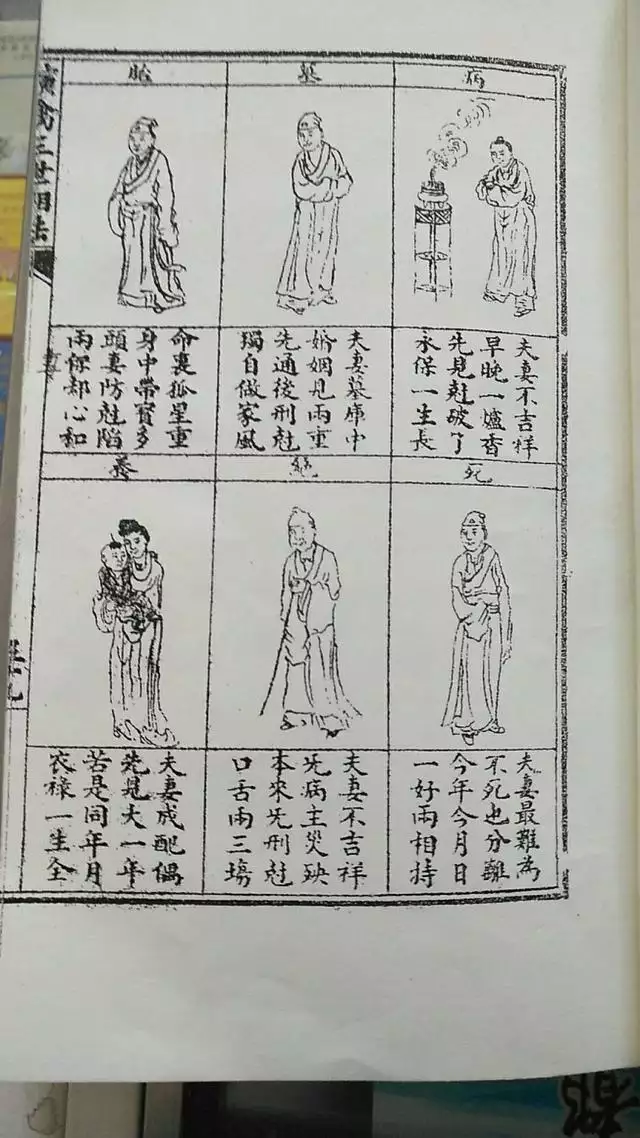 病
夫妻不吉祥
早晚一爐香
先見尅破了
永保一生長
墓
夫妻墓庫中
婚姻見兩重
先通後刑尅
獨自做家風
胎
命裏孤星重
身中帶寶多
頭妻防尅陷
兩保却心和
死
夫妻最難為
不死也分離
今年今月日
一好兩相持
絕
夫妻不吉祥
旡病主災殃
本來旡刑尅
口舌兩三塲
養
夫妻成配偶
先見大一年
若是同年月
衣祿一生全
演禽三世相法
都